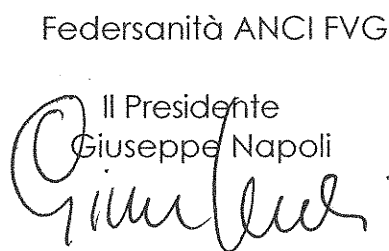 Federsanità ANCI FVG
Il Presidente
Giuseppe Napoli